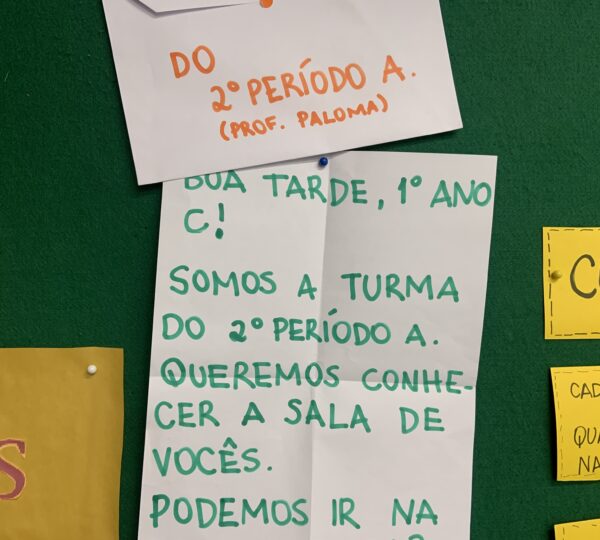 DO
2º PERÍODO A.
(PROF. PALOMA)
BOA TARDE, 1º ANO
C!
SOMOS A TURMA
DO 2º PERÍODO A.
QUEREMOS CONHE-
CER A SALA DE
VOCÊS.
PODEMOS IR NA
S
C
CAD
QUA
NA